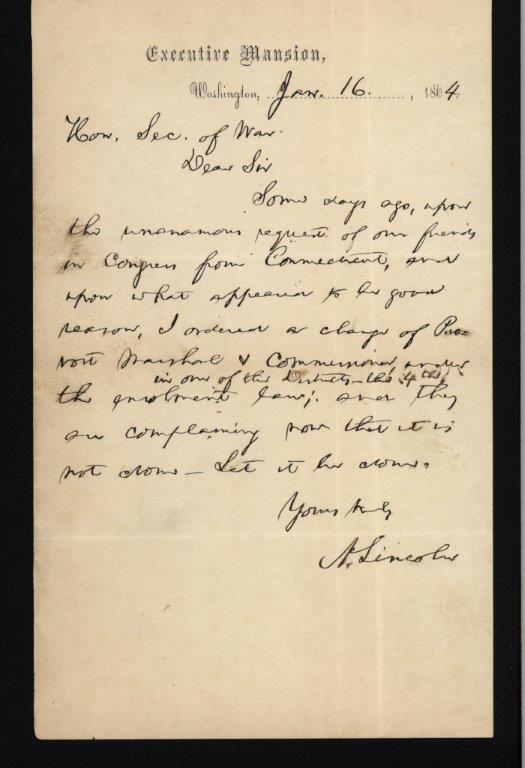 Executive Mansion,
Washington, Jan. 16. , 1864.
Hon. Sec. of War.
Dear Sir
Some days ago, upon
the unanamous request of our friends
in Congress from Connecticut, and
upon what appeared to be good
reason, I ordered a change of Pro-
vost Marshal & Commissioner, under
in one of the Districts—the 4th,
the enrolment law; and they
are complaining now that it is
not done— Let it be done.
Yours truly
A. Lincoln